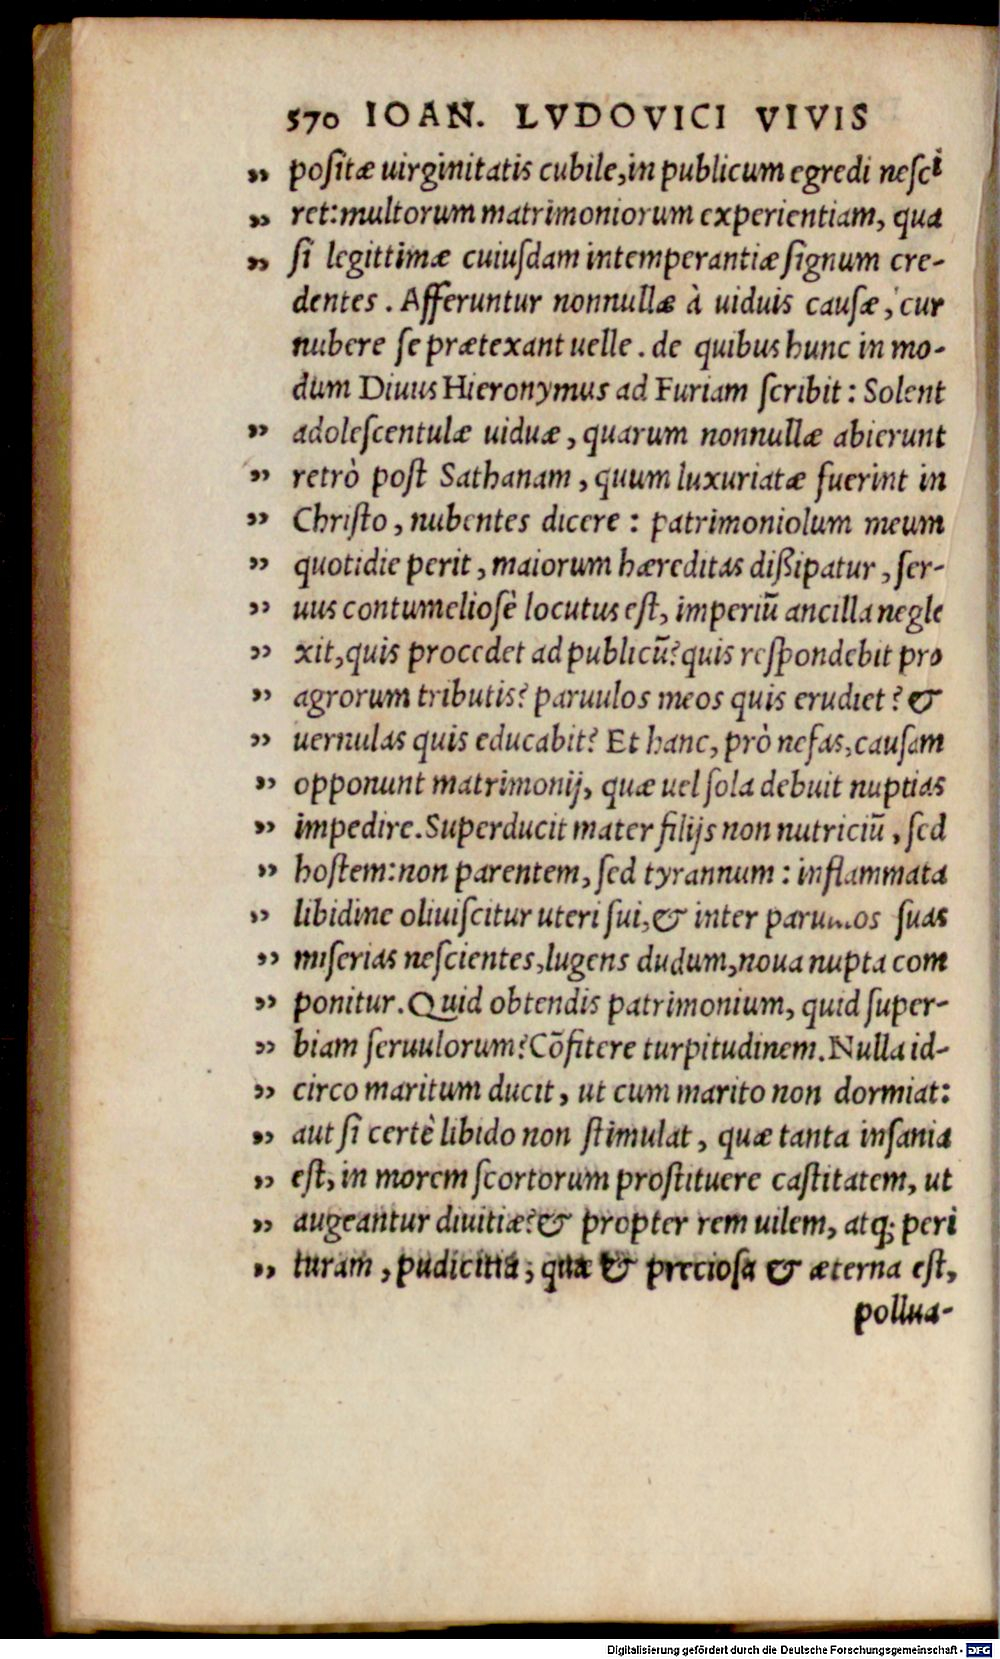 570 IOAN. LVDOVICI VIVIS
„ positæ uirginitatis cubile,in publicum egredi nesci
„ ret:multorum matrimoniorum experientiam, qua
„ si legittimæ cuiusdam intemperantiæ signum cre-
dentes. Afferuntur nonnullæ à uiduis causæ, cur
nubere se prætexant uelle. de quibus hunc in mo-
dum Diuus Hieronymus ad Furiam scribit: Solent
„ adolescentulæ uiduæ, quarum nonnullæ abierunt
„ retrò post Sathanam, quum luxuriatæ fuerint in
„ Christo, nubentes dicere: patrimoniolum meum
„ quotidie perit, maiorum hæreditas dißipatur, ser-
„ uus contumeliosè locutus est, imperiũ ancilla negle
„ xit,quis procedet ad publicũ?quis respondebit pro
„ agrorum tributis? paruulos meos quis erudiet? &
„ uernulas quis educabit? Et hanc, prò nefas,causam
„ opponunt matrimonij, quæ uel sola debuit nuptias
„ impedire.Superducit mater filijs non nutriciũ, sed
„ hostem:non parentem, sed tyrannum: inflammata
„ libidine oliuiscitur uteri sui,& inter suas
„ miserias nescientes,lugens dudum,noua nupta com
„ ponitur.Quid obtendis patrimonium, quid super-
„ biam seruulorum?Cõfitere turpitudinem.Nulla id-
„ circo maritum ducit, ut cum marito non dormiat:
„ aut si certè libido non stimulat, quæ tanta insania
„ est, in morem scortorum prostituere castitatem, ut
„ augeantur diuitiæ?& propter rem uilem, atq; peri
„ turam, pudicitia, quæ & preciosa & æterna est,
pollua-
Digitalisierung gefördert durch die Deutsche Forschungsgemeinschaft - DFG